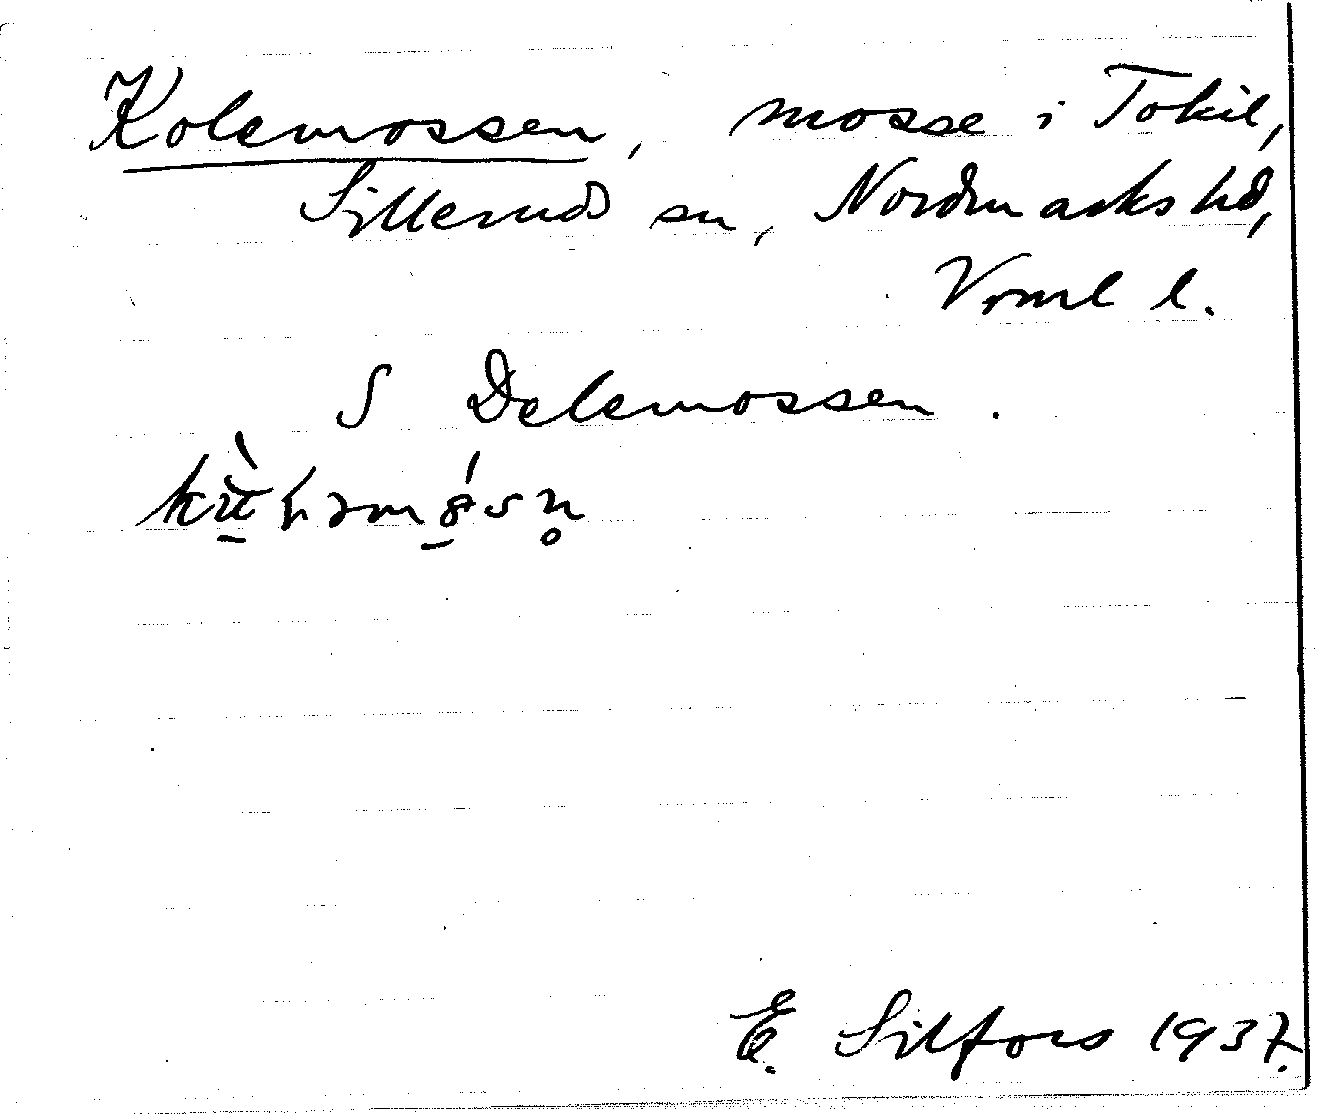 Kolemossen, mosse i Tokil,
Sillerud sn, Nordmarks hd,
Vrml l.
S Delemossen.
E. Silfors 1937.